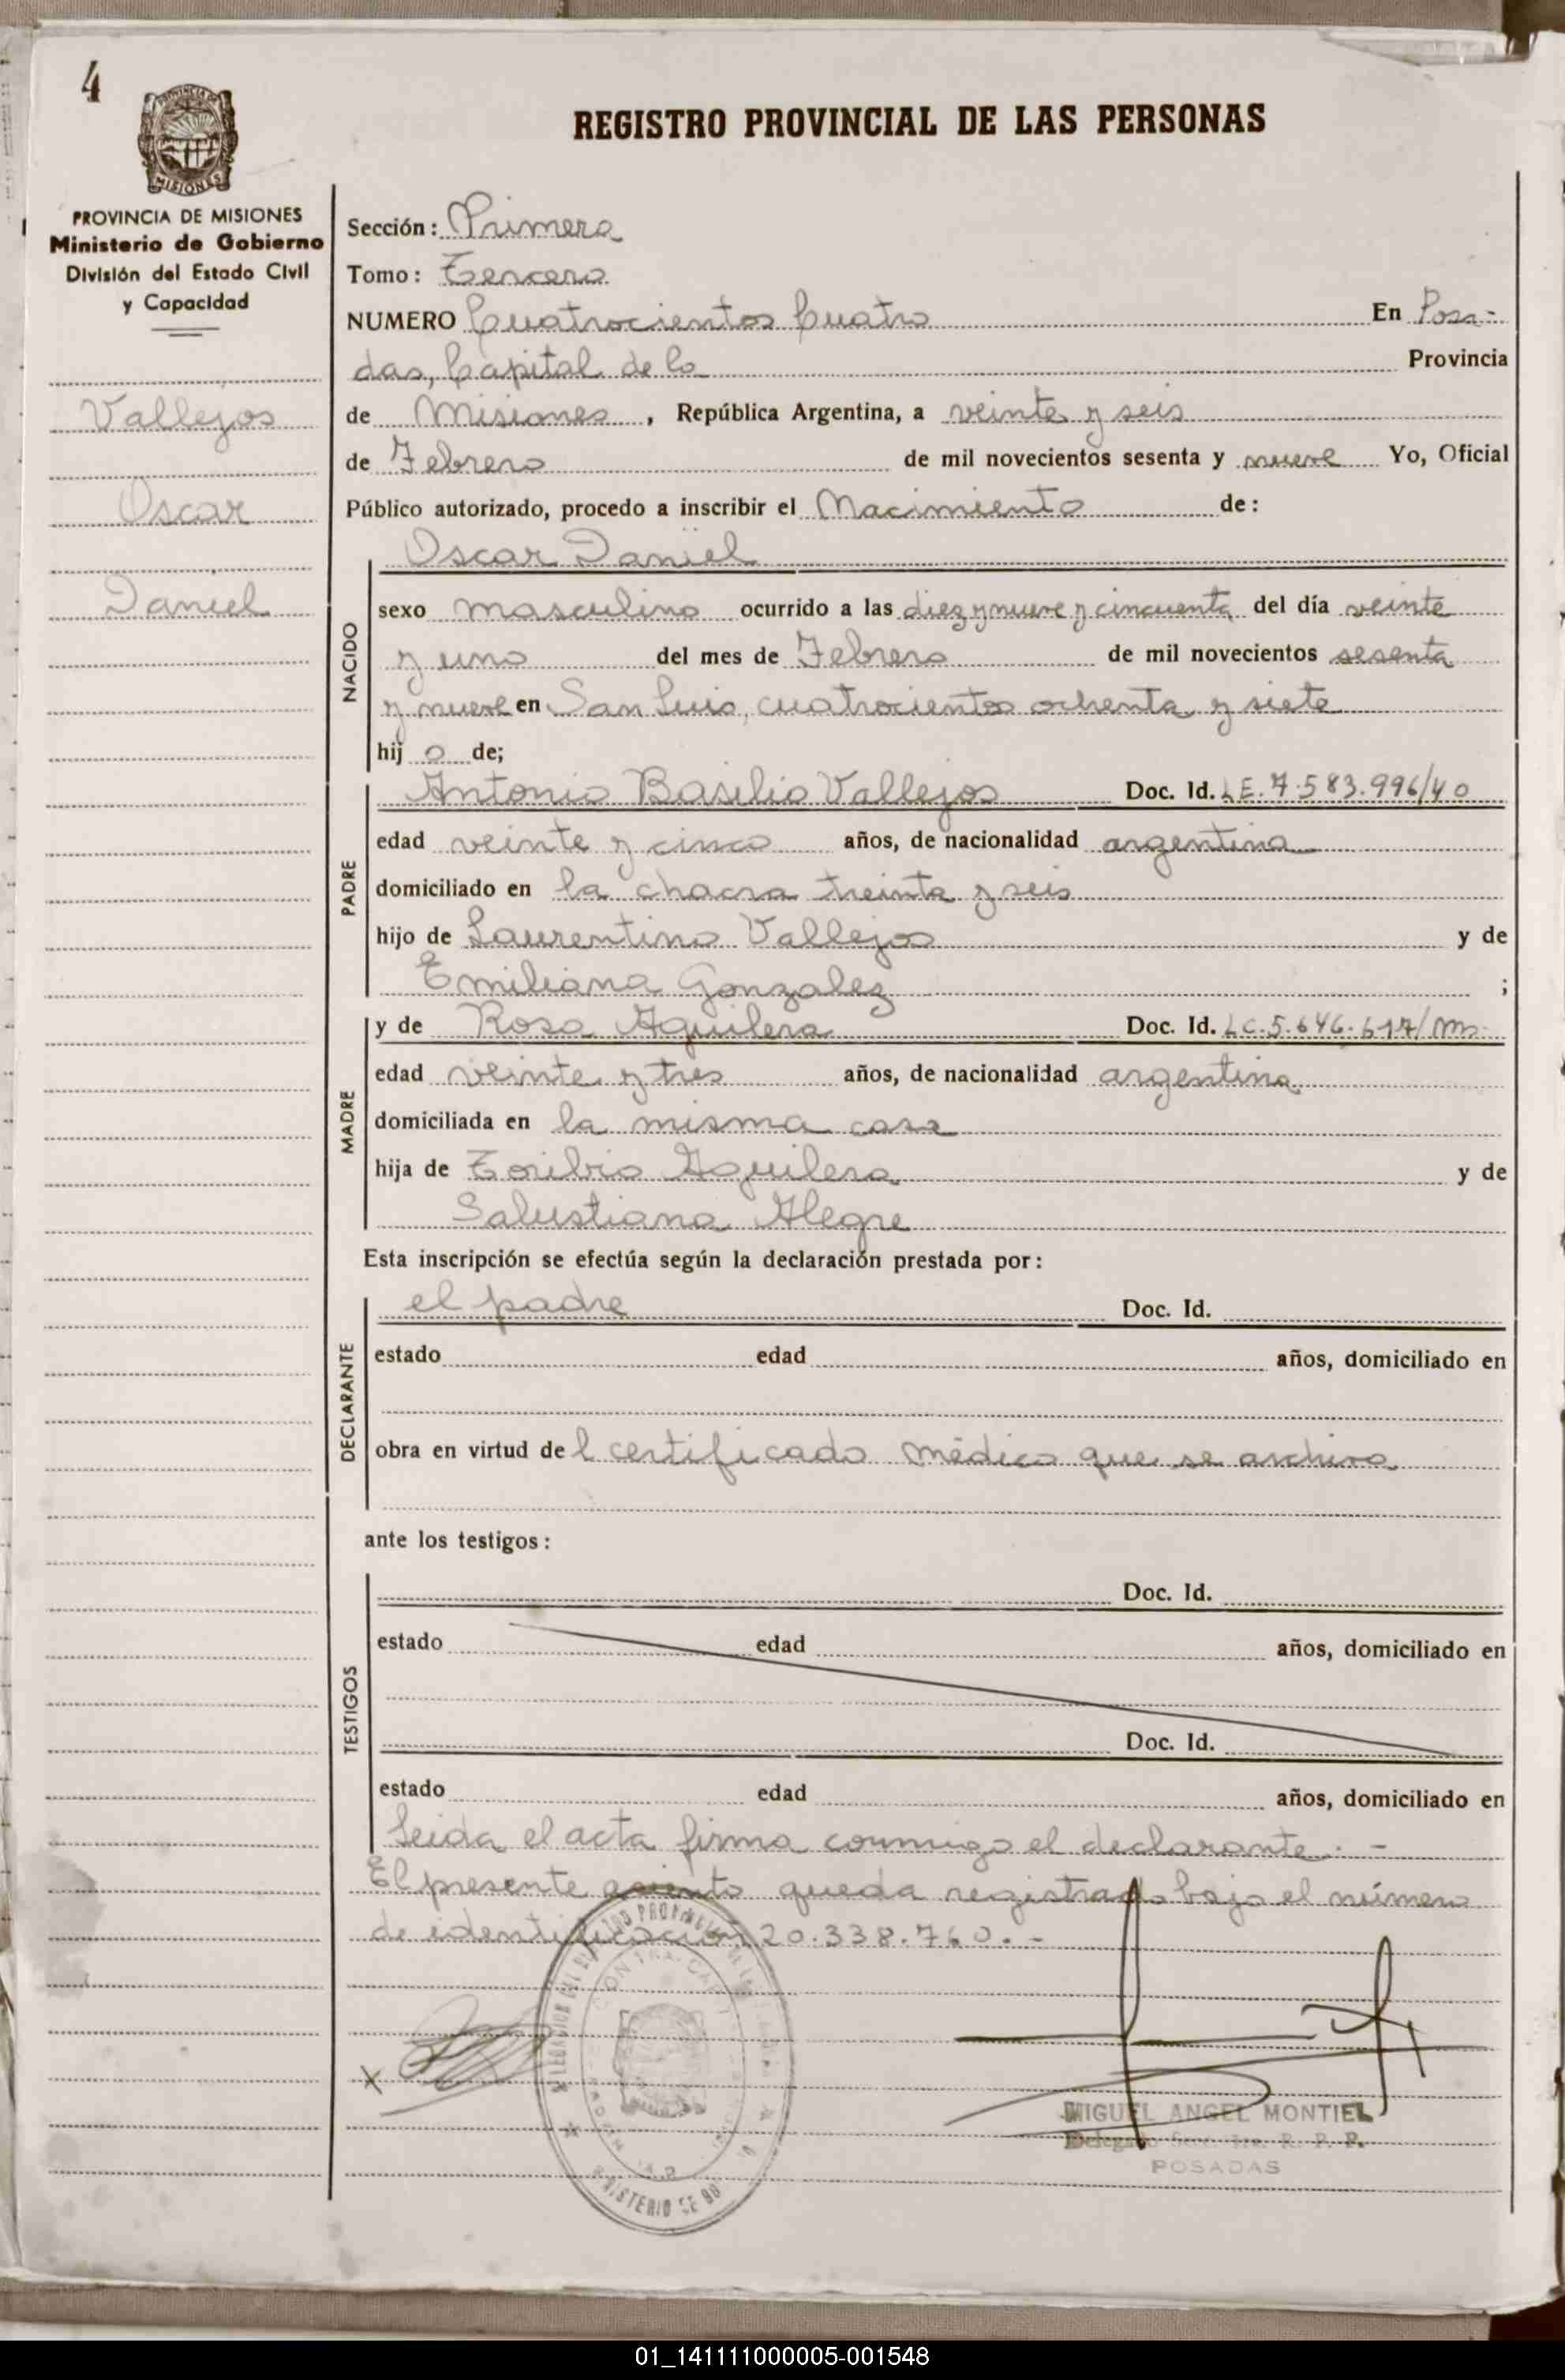 4
REGISTRO PROVINCIAL DE LAS PERSONAS
PROVINCIA DE MISIONES
Ministerio de Gobierno
División del Estado Civil
y Capacidad
Vallejos
Oscar
Daniel
Sección: Primera
Tomo: Tercero
NUMERO Cuatrocientos Cuatro En Posa-
das, Capital de la Provincia
de Misiones, República Argentina, a veinte y seis
de Febrero de mil novecientos sesenta y nueve Yo, Oficial
Público autorizado, procedo a inscribir el Nacimiento de:
Oscar Daniel
NACIDO
sexo masculino ocurrido a las diez y nueve y cincuenta del día veinte
y uno del mes de Febrero de mil novecientos sesenta
y nueve en San Luis, cuatrocientos ochenta y siete
hij o de;
PADRE
Antonio Basilio Vallejos Doc. Id. LE. 7.583.996/40
edad veinte y cinco años, de nacionalidad argentina
domiciliado en la chacra treinta y seis
hijo de Laurentino Vallejos y de
Emiliana Gonzalez ;
MADRE
y de Rosa Aguilera Doc. Id. LC. 5.646.617/Ms.
edad veinte y tres años, de nacionalidad argentina
domiciliada en la misma casa
hija de Toribio Aguilera y de
Salustiana Alegre
Esta inscripción se efectúa según la declaración prestada por:
DECLARANTE
el padre Doc. Id.
estado edad años, domiciliado en
obra en virtud de l certificado médico que se archiva
ante los testigos:
TESTIGOS
Doc. Id.
estado edad años, domiciliado en
Doc. Id.
estado edad años, domiciliado en
Leida el acta firma conmigo el declarante. -
El presente asiento queda registrado bajo el número
de identificación 20.338.760. -
x
MIGUEL ANGEL MONTIEL
Delegado Secc. 1ra. R. P. P.
POSADAS
01_141111000005-001548